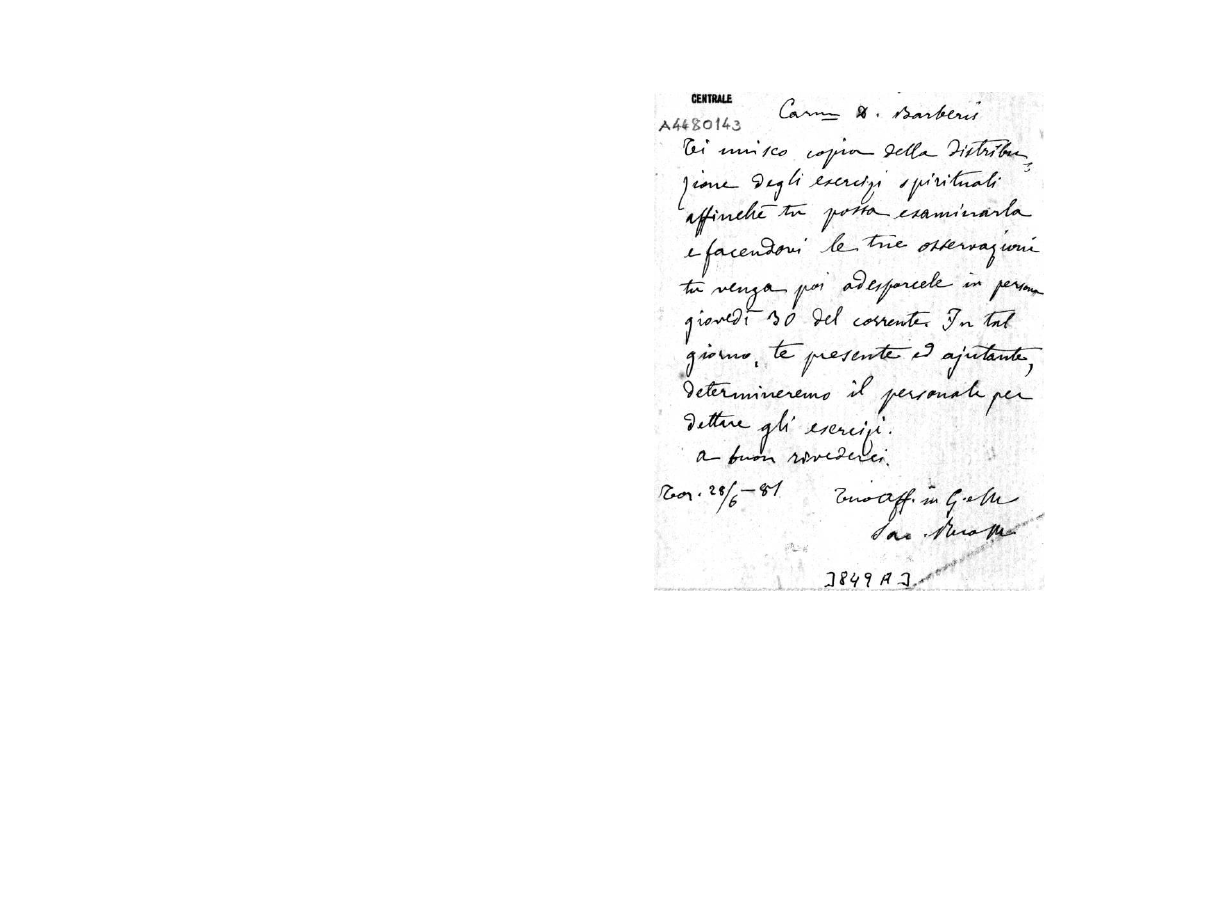 CENTRALE
A4480143
Carmo D. Barberis
Ti unisco copia della distribu
zione degli esercizi spirituali
affinchè tu possa esaminarla
e facendovi le tue osservazioni
tu venga poi ad esporcele in persona
giovedì 30 del corrente. In tal
giorno, te presente ed ajutante,
determineremo il personale per
dettare gli esercizi.
A buon rivederci.
Tor. 28/6-81
Tuo Aff. in G. e M.
Sac.
3849 A 3